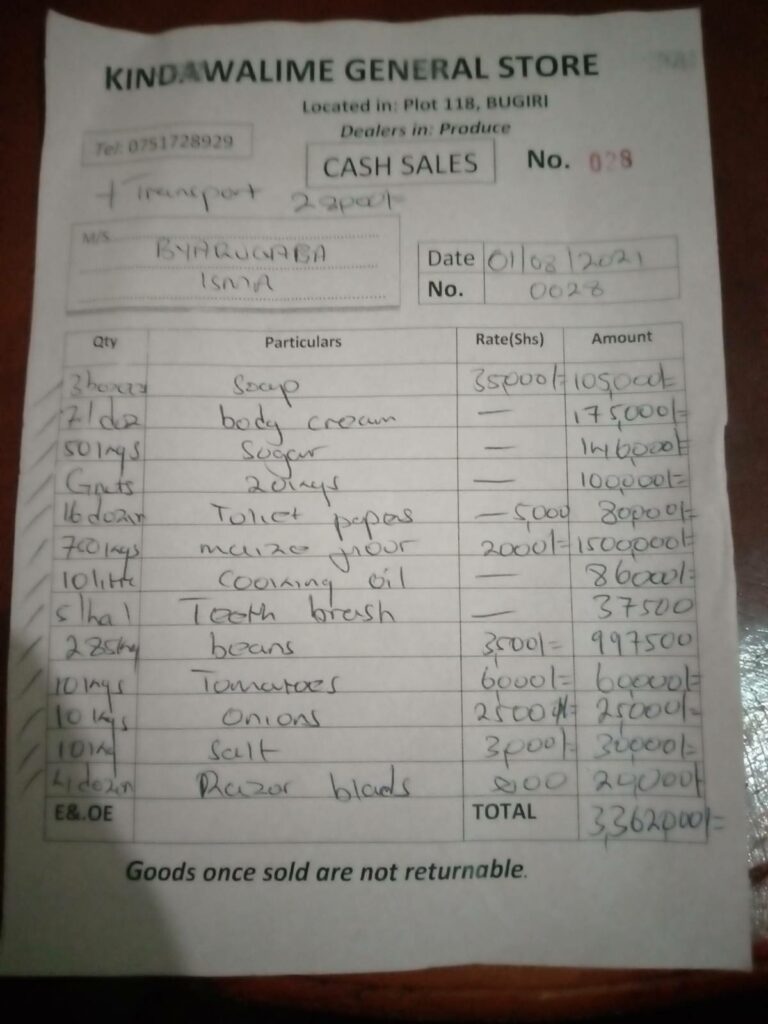 KINDAWALIME GENERAL STORE
Located in: Plot 118, BUGIRI
Dealers in: Produce
Tel: 0751728929
CASH SALES No. 028
+ Transport
M/S BYARUGABA
ISMA
Date 01/08/2021
No. 0028
Qty Particulars Rate(Shs) Amount
3boxes Soap 35,000/= 105,000/=
body cream — 175,000/=
50 kgs Sugar — 146,000/=
Gnuts 20 kgs — 100,000/=
16 dozin Toliet papers — 5,000 80,000/=
maize flour 2000/= 1500,000/=
10 litre Cooking oil — 86000/=
Teeth brash — 37500
285kg beans 3500/= 997500
10 kgs Tomatoes 6000/= 60,000/=
10 kgs Onions 2500/= 25000/=
10 kg Salt 3,000/= 30,000/=
dozin Razor blads
E&.OE TOTAL 3,362,000/=
Goods once sold are not returnable.